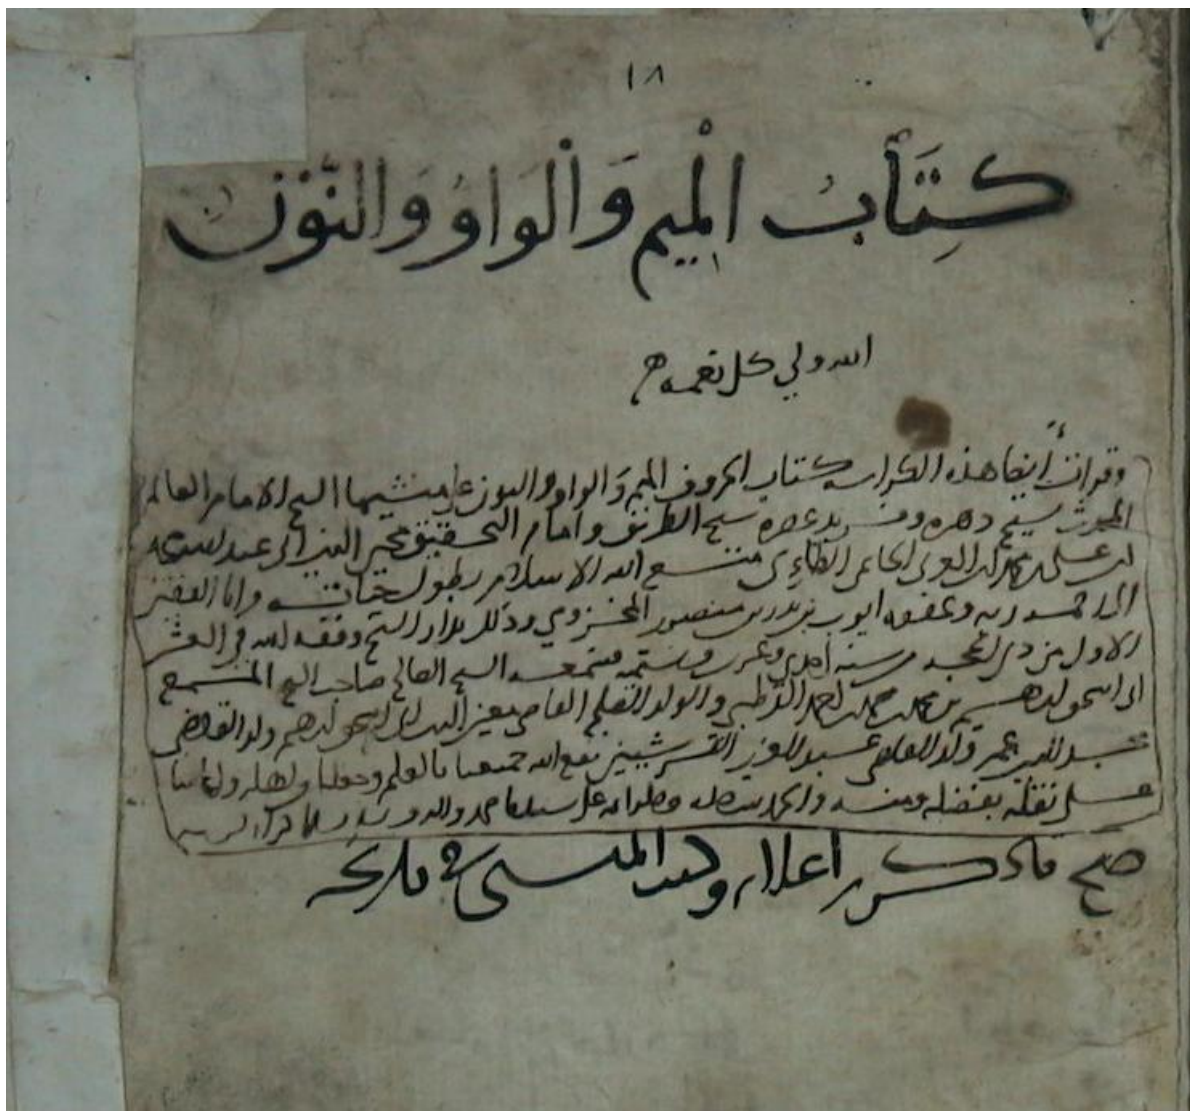 ١٨
كِتَابُ الْمِيمِ وَالْوَاوِ وَالنُّونِ
الله ولي كل نعمه
وقرات أيضا هذه الكراسه كتاب الحروف الميم والواو والنون على منشيها الشيخ الامام العالم
شيخ دهره وفريد عصره شيخ الطريق وامام التحقيق محيي الدين ابي عبد الله محمد
بن على بن محمد بن العربي الحاتمي الطائي متع الله الاسلام بطول حياته وانا الفقير
الى رحمه ربه وعفوه ايوب بن بدر بن منصور المخزومي وذلك بدار الشيخ وفقه الله في العشر
الاول من ذي سنه احدى وعشرين وستميه الشيخ الصالح صاحب الشيخ المسمع
ابي اسحق ابرهيم بن محمد بن محمد القرطبي والولد القاضي معز الدين ابو اسحق ابرهيم ولد القاضي
عمر ولد القاضي عبد العزيز القرشيين نفع الله جميعنا بالعلم وجعلنا واهله
بفضله ومنه والحمد لله وصلواته على سيدنا محمد واله
صح ما ذكر اعلاه وكتب المنشى في تاريخه